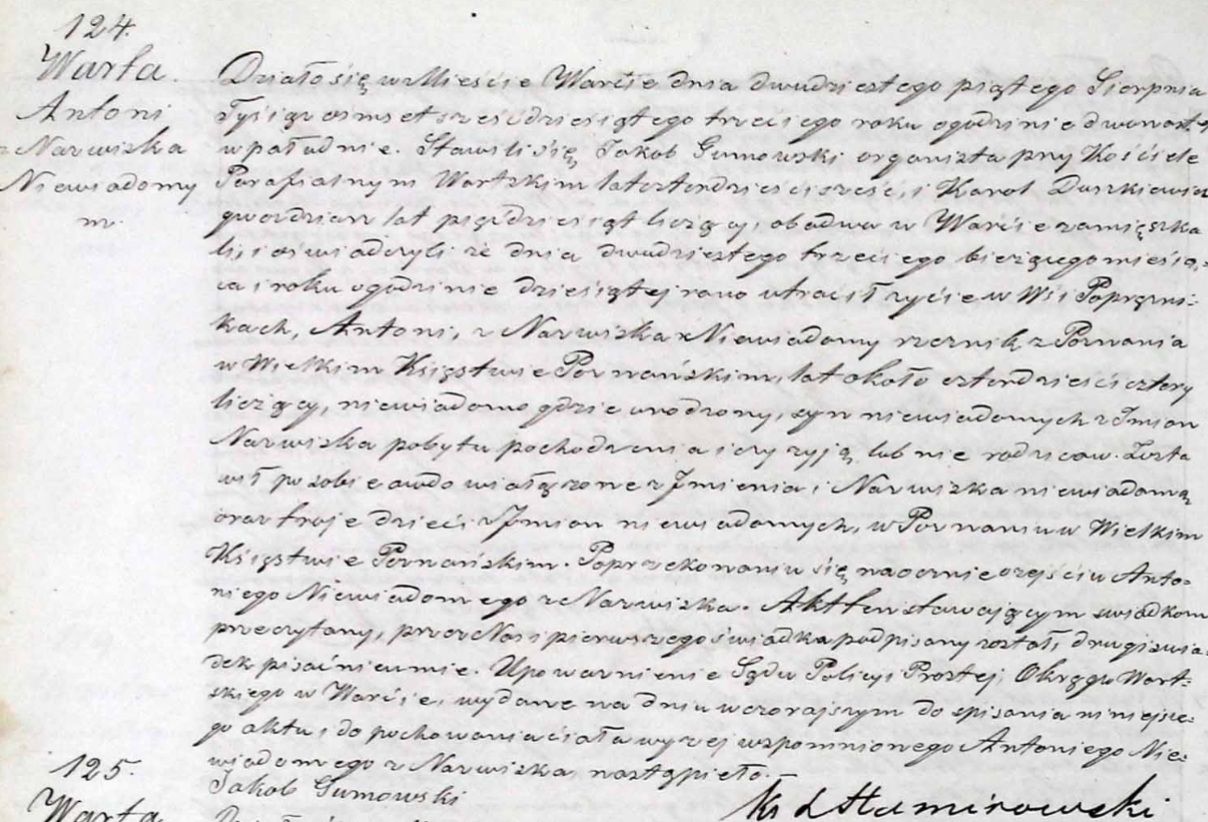 124.
Warta.
Antoni
z Nazwiska
Niewiadomy
m.
Działo się w Mieście Warcie dnia dwudziestego piątego Sierpnia
Tysiąc ośmset sześćdziesiątego trzeciego roku o godzinie dwunastej
w południe. Stawili się, Jakób Gumowski organista przy Kościele
Parafialnym Wartskim lat czterdzieści sześć, i Karol Duszkiewicz
gwardzian lat pięćdziesiąt liczący, obadwa w Warcie zamięszka
li, i oświadczyli że dnia dwudziestego trzeciego bieżącego miesią-
ca i roku o godzinie dziesiątej rano utracił życie w Wsi Poprężni-
kach, Antoni, z Nazwiska Niewiadomy rzeźnik z Poznania
w Wielkim Księstwie Poznańskim, lat około czterdzieści cztery
liczący, niewiadomo gdzie urodzony, syn niewiadomych z Imion
Nazwiska pobytu pochodzenia i czy żyją lub nie rodziców. Zosta
wił po sobie owdowiałą żonę z Imienia i Nazwiska niewiadomą
oraz troje dzieci z Imion niewiadomych, w Poznaniu w Wielkim
Księstwie Poznańskim. Po przekonaniu się naocznie o zejściu Anto-
niego Niewiadomego z Nazwiska. Akt ten stawającym świadkom
przeczytany, przez Nas i pierwszego świadka podpisany został, drugi świa-
dek pisać nieumie. Upoważnienie Sądu Policyi Prostej Okręgu Wart-
skiego w Warcie, wydane na dniu wczorajszym do spisania niniejsze-
go aktu, i do pochowania ciała wyżej wspomnionego Antoniego Nie-
wiadomego z Nazwiska, nastąpieło.—
Jakób Gumowski
Ks L Stamirowski
125.
Warta